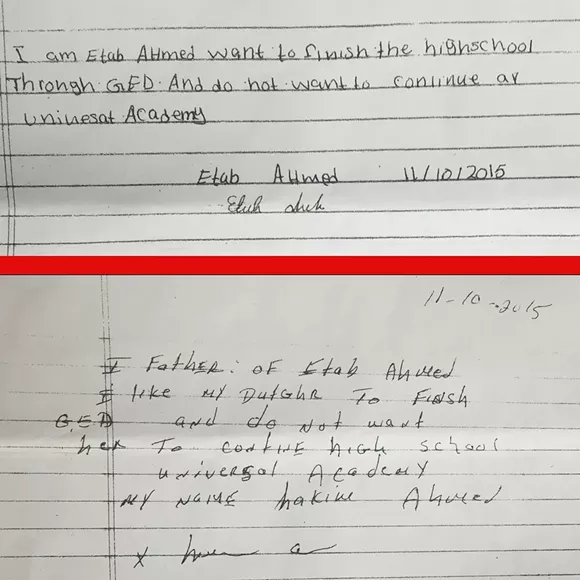 I am Etab AHmed want to finish the highschool
Through GED. And do not want to continue at
Uninesat Academy
Etab AHmed 11/10/2015
11-10-2015
I Father: OF Etab Ahmed
I like MY DutGhR To Finsh
G.ED and do Not want
her To contine high school
universal Academy
MY NAME hakim Ahmed
x